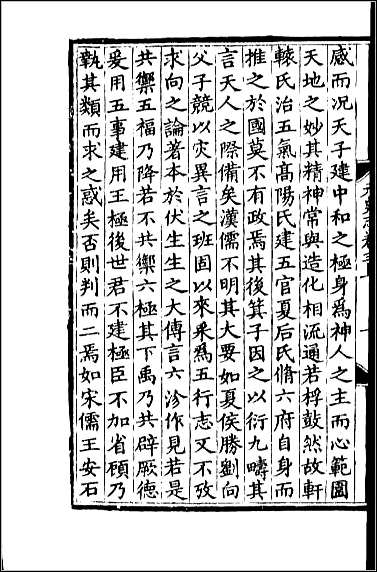 感而况天子建中和之極身爲神人之主而心範圍
天地之妙其精神常與造化相流通若桴鼓然故軒
轅氏治五氣高陽氏建五官夏后氏脩六府自身而
推之於國莫不有政焉其後箕子因之以衍九疇其
言天人之際備矣漢儒不明其大要如夏侯勝劉向
父子競以災異言之班固以來采爲五行志又不攷
求向之論著本於伏生生之大傳言六沴作見若是
共禦五福乃降若不共禦六極其下禹乃共辟厥德
爰用五事建用王極後世君不建極臣不加省顧乃
執其類而求之惑矣否則判而二焉如宋儒王安石